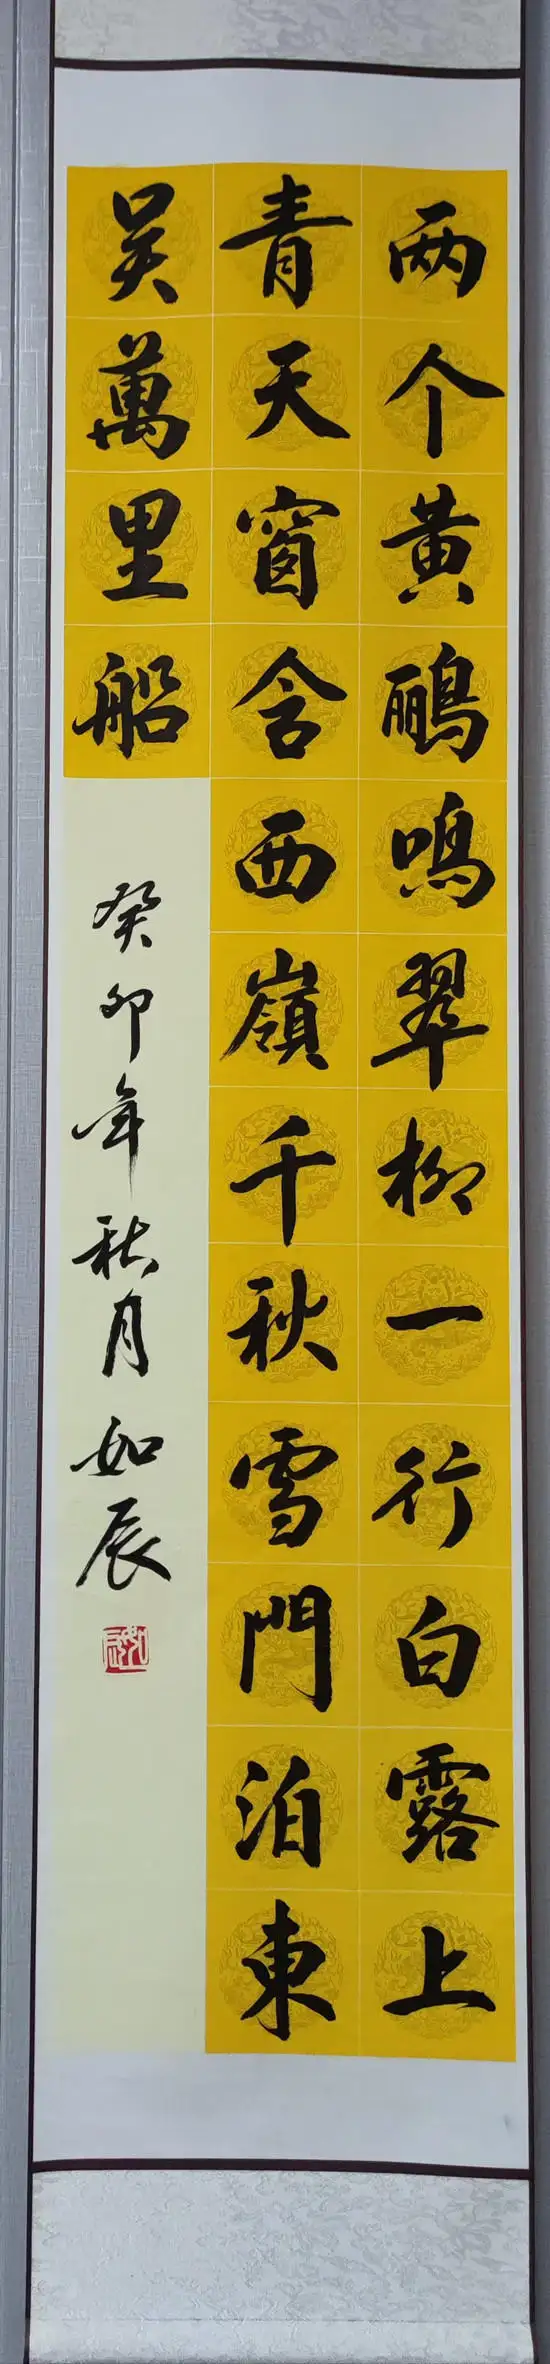 两个黄鹂鸣翠柳一行白露上
青天窗含西嶺千秋雪門泊東
吴萬里船
癸卯年秋月如辰
如辰